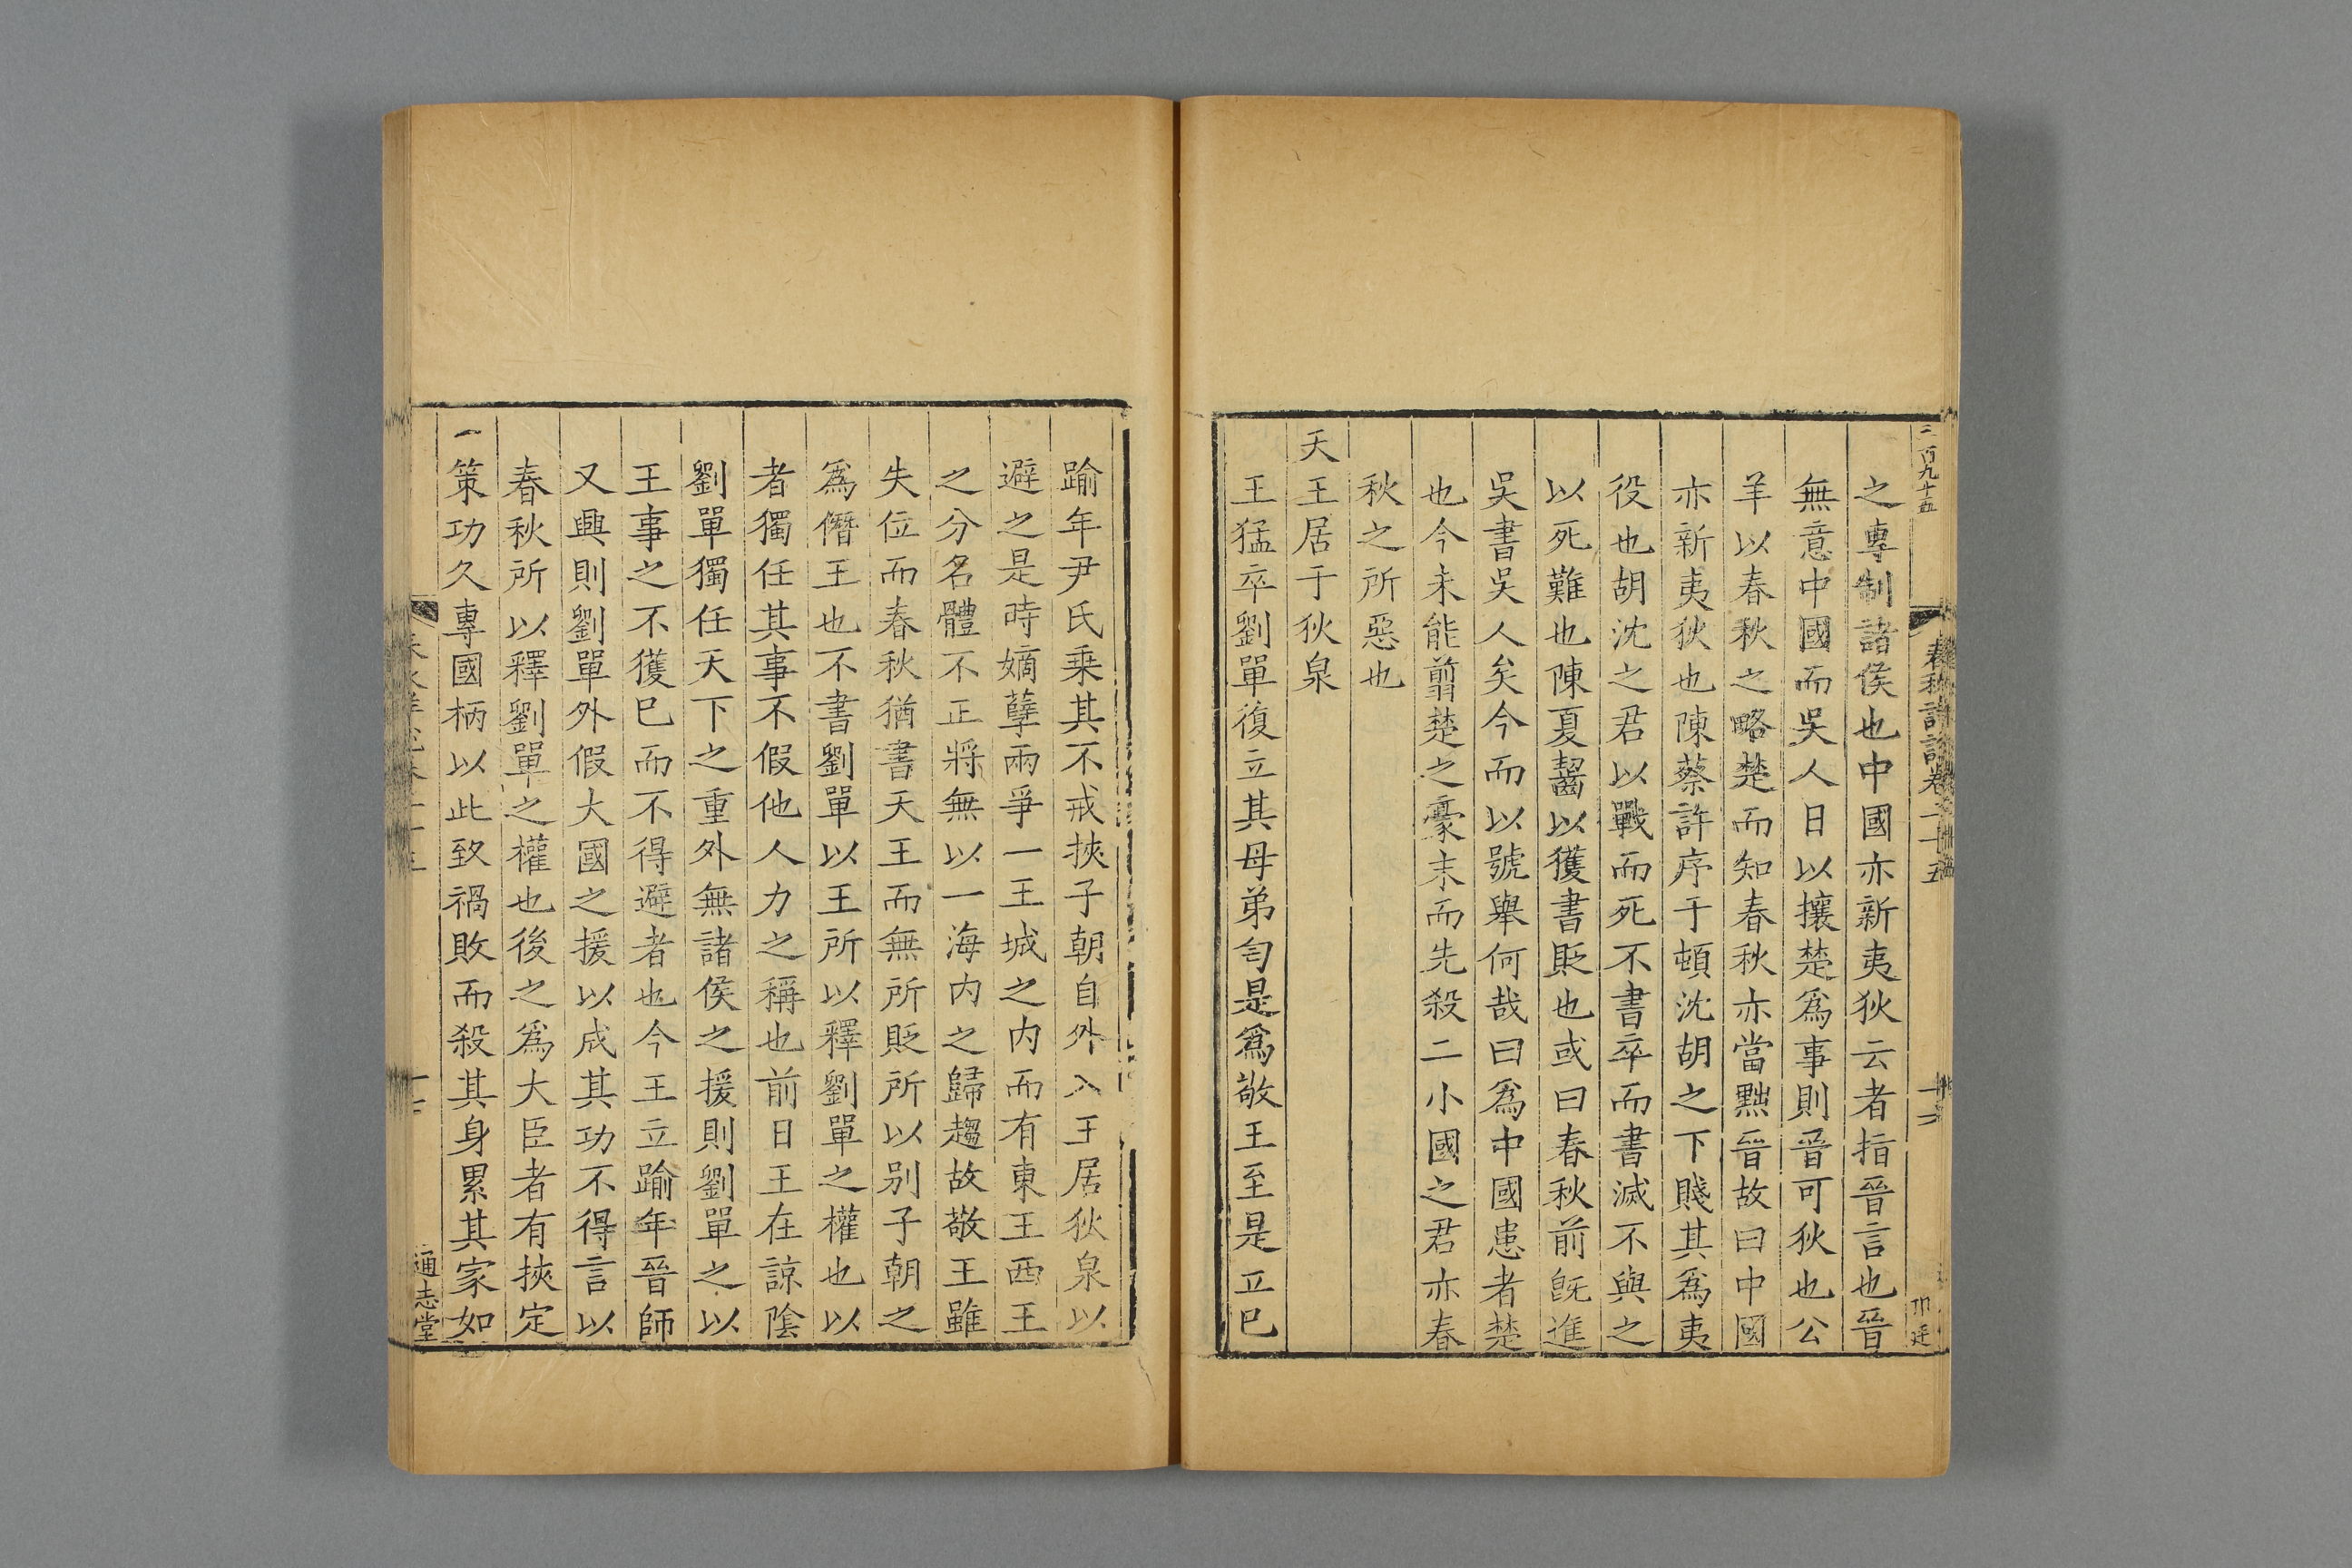 二百九十五
春秋詳說卷二十五
之專制諸侯也中國亦新夷狄云者指晉言也晉
無意中國而吳人日以攘楚爲事則晉可狄也公
羊以春秋之略楚而知春秋亦當黜晉故曰中國
亦新夷狄也陳蔡許序于頓沈胡之下賤其爲夷
役也胡沈之君以戰而死不書卒而書滅不與之
以死難也陳夏齧以獲書貶也或曰春秋前旣進
吳書吳人矣今而以號舉何哉曰爲中國患者楚
也今未能翦楚之豪末而先殺二小國之君亦春
秋之所惡也
天王居于狄泉
王猛卒劉單復立其母弟匄是爲敬王至是立巳
踰年尹氏乗其不戒挾子朝自外入王居狄泉以
避之是時嫡孽兩爭一王城之内而有東王西王
之分名體不正將無以一海内之歸趨故敬王雖
失位而春秋猶書天王而無所貶所以别子朝之
爲僭王也不書劉單以王所以釋劉單之權也以
者獨任其事不假他人力之稱也前日王在諒隂
劉單獨任天下之重外無諸侯之援則劉單之以
王事之不獲巳而不得避者也今王立踰年晉師
又興則劉單外假大國之援以成其功不得言以
春秋所以釋劉單之權也後之爲大臣者有挾定
策功久專國柄以此致禍敗而殺其身累其家如
通志堂